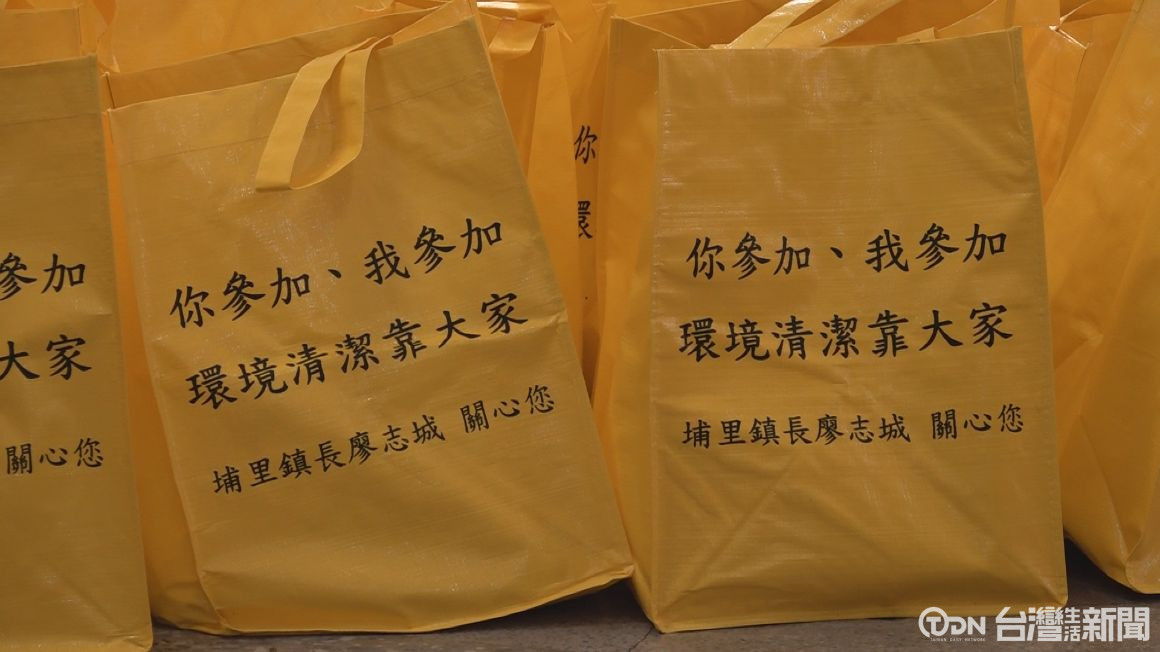 參加
大家
關心您
你參加、我參加
環境清潔靠大家
埔里鎮長廖志城 關心您
你
環
你參加、我參加
環境清潔靠大家
埔里鎮長廖志城 關心您
TDN 台灣生活新聞
TAIWAN DAILY NETWORK